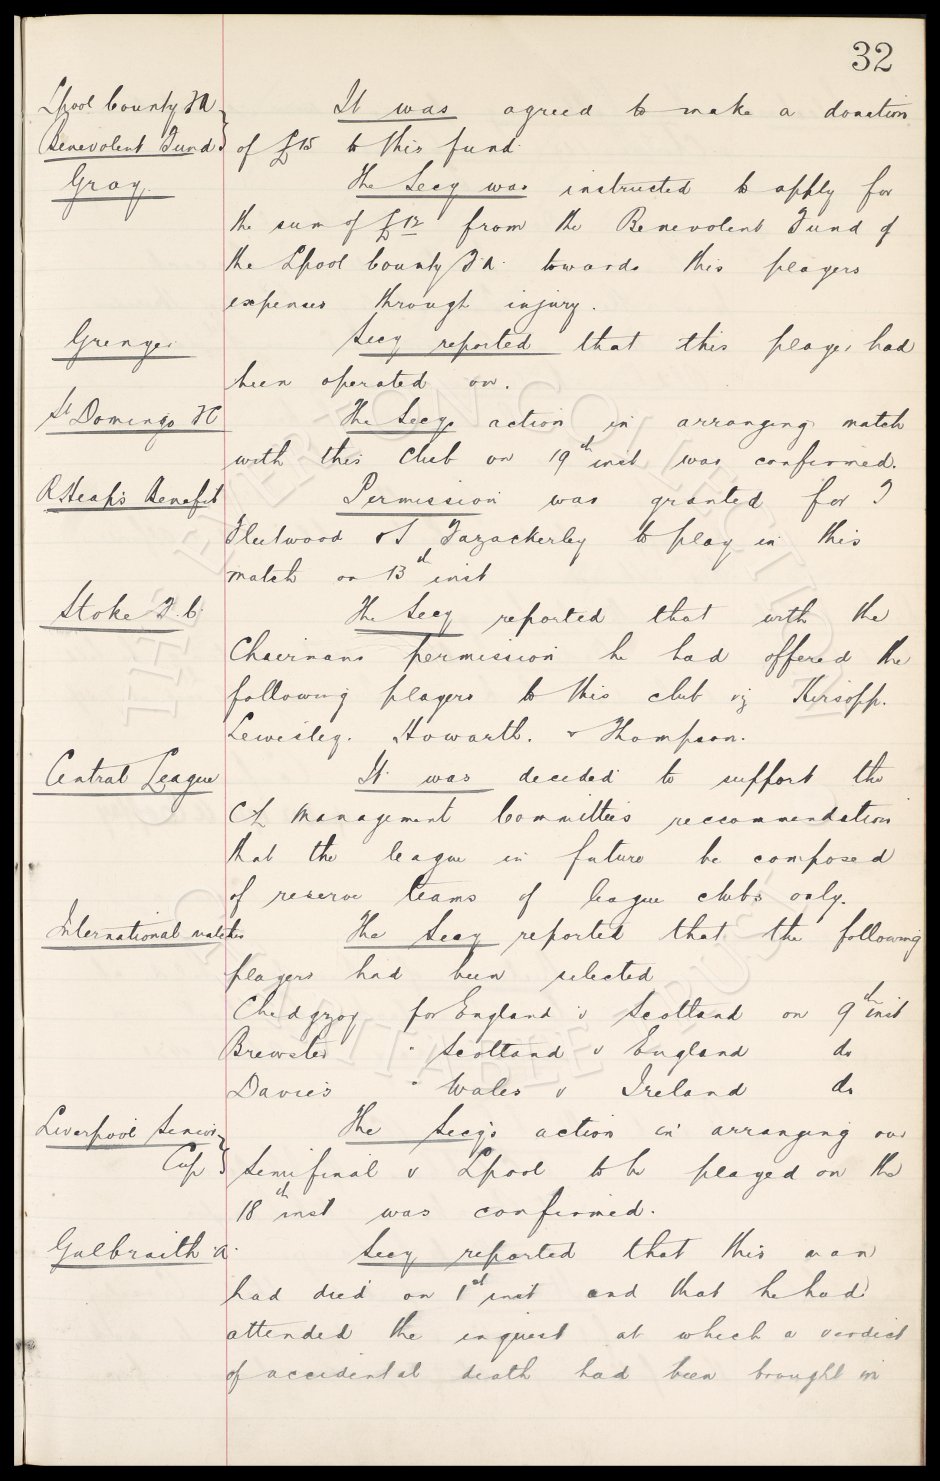 32
Lpool County F A
Benevolent Fund
It was agreed to make a donation
of £15 to this fund.
Gray.
The Secy was instructed to apply for
the sum of £12 from the Benevolent Fund of
the Lpool County F.A. towards this players
expenses through injury.
Grenyer
Secy reported that this player had
been operated on.
St Domingo FC
The Secys action in arranging match
with this Club on 19th inst was confirmed.
R Heap's Benefit
Permission was granted for T
Fleetwood & J Fazackerley to play in this
match on 13th inst
Stoke F. C.
The Secy reported that with the
Chairmans permission he had offered the
following players to this club viz Kirsopp.
Lewis Howarth. & Thompson.
Central League
It was decided to support the
CL Management Committees reccommendation
that the league in future be composed
of reserve teams of league clubs only.
International matches
The Secy reported that the following
players had been selected
Chedgzoy for England v Scotland on 9th inst
Brewster " Scotland v England do
Davies " Wales v Ireland do
Liverpool Senior
Cup
The Secy's action in arranging our
Semi final v Lpool to be played on the
18th inst was confirmed.
Galbraith A.
Secy reported that this man
had died on 1st inst and that he had
attended the inquest at which a verdict
of accidental death had been brought in
THE EVERTON COLLECTION
CHARITABLE TRUST